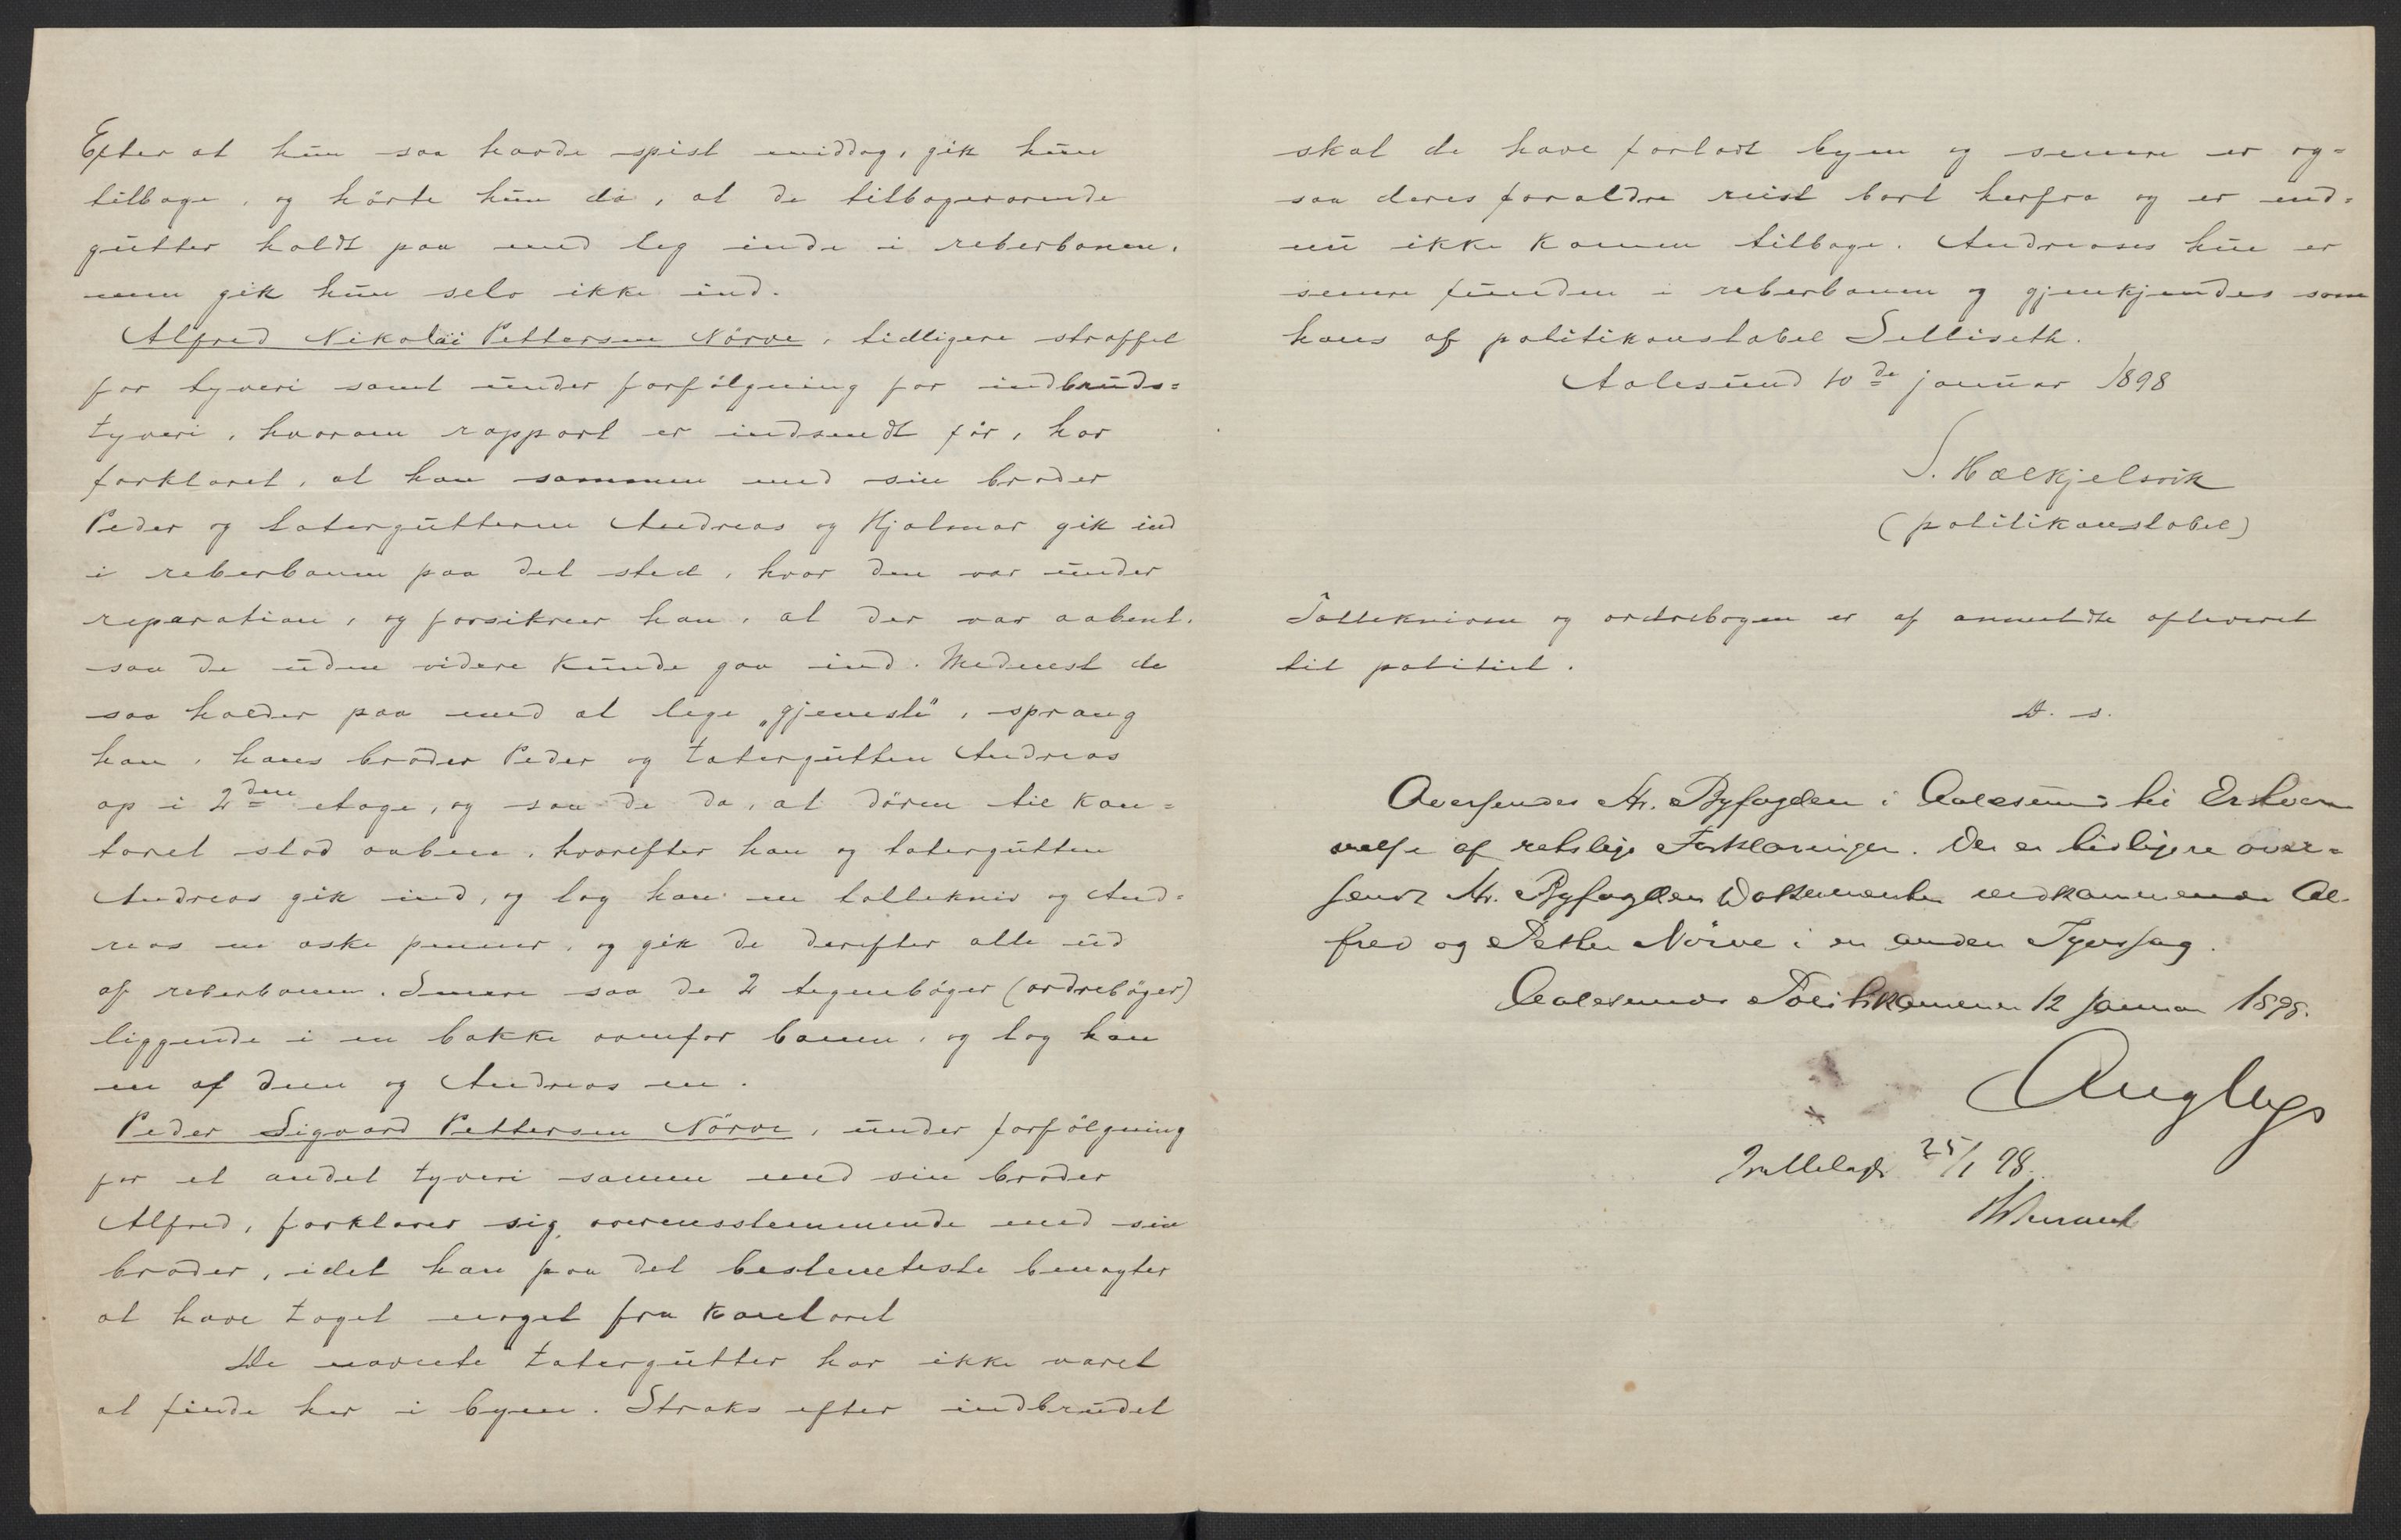 Efter at hun saa havde spist middag, gik hun
tilbage, og hørte hun da, at de tilbageværende
gutter holdt paa med leg inde i reberbanen,
men gik hun selv ikke ind.
Alfred Nikolai Pettersen Nörve, tidligere straffet
for tyveri samt under forfølgning for indbruds=
tyveri, hvorom rapport er indsendt før, har
forklaret, at han sammen med sin broder
Peder og tatergutterne Andreas og Hjalmar gik ind
i reberbanen paa det sted, hvor den var under
reparation, og forsikrer han, at der var aabent,
saa de uden videre kunde gaa ind. Medens de
saa holder paa med at lege „gjemsti", sprang
han, hans broder Peder og tatergutten Andreas
op i 2den etage, og saa de da, at døren til kon=
toret stod aaben, hvorefter han og tatergutten
Andreas gik ind, og tog han en tollekniv og And=
reas en æske penner, og gik de derefter alle ud
af reberbanen. Senere saa de 2 tegnebøger (ordrebøger)
liggende i en bakke ovenfor banen, og tog han
en af dem og Andreas en.
Peder Sigvard Pettersen Nörve, under forfølgning
for et andet tyveri sammen med sin broder
Alfred, forklarer sig overensstemmende med sin
broder, idet han paa det bestemteste benægter
at have taget noget fra kontoret
De nævnte tatergutter har ikke været
at finde her i byen. Straks efter indbrudet
skal de have forladt byen og senere er og=
saa deres forældre reist bort herfra og er end=
nu ikke kommen tilbage. Andreases hue er
senere funden i reberbanen og gjenkjendes som
hans af politikonstabel Selliseth.
Aalesund 10de januar 1898
S. Hælkjelsvik
(politikonstabel)
Tollekniven og ordrebogen er af anmeldte afleveret
til politiet.
D. s.
Oversendes Hr. Byfogden i Aalesund til Erhver
velse af retslige Forklaringer. Der er tidligere over=
sendt Hr. Byfogden Dokumenter vedkommende Al-
fred og Petter Nörve i en anden Tyvssag.
Aalesunds Politikammer 12 Januar 1898.
25/1 98.